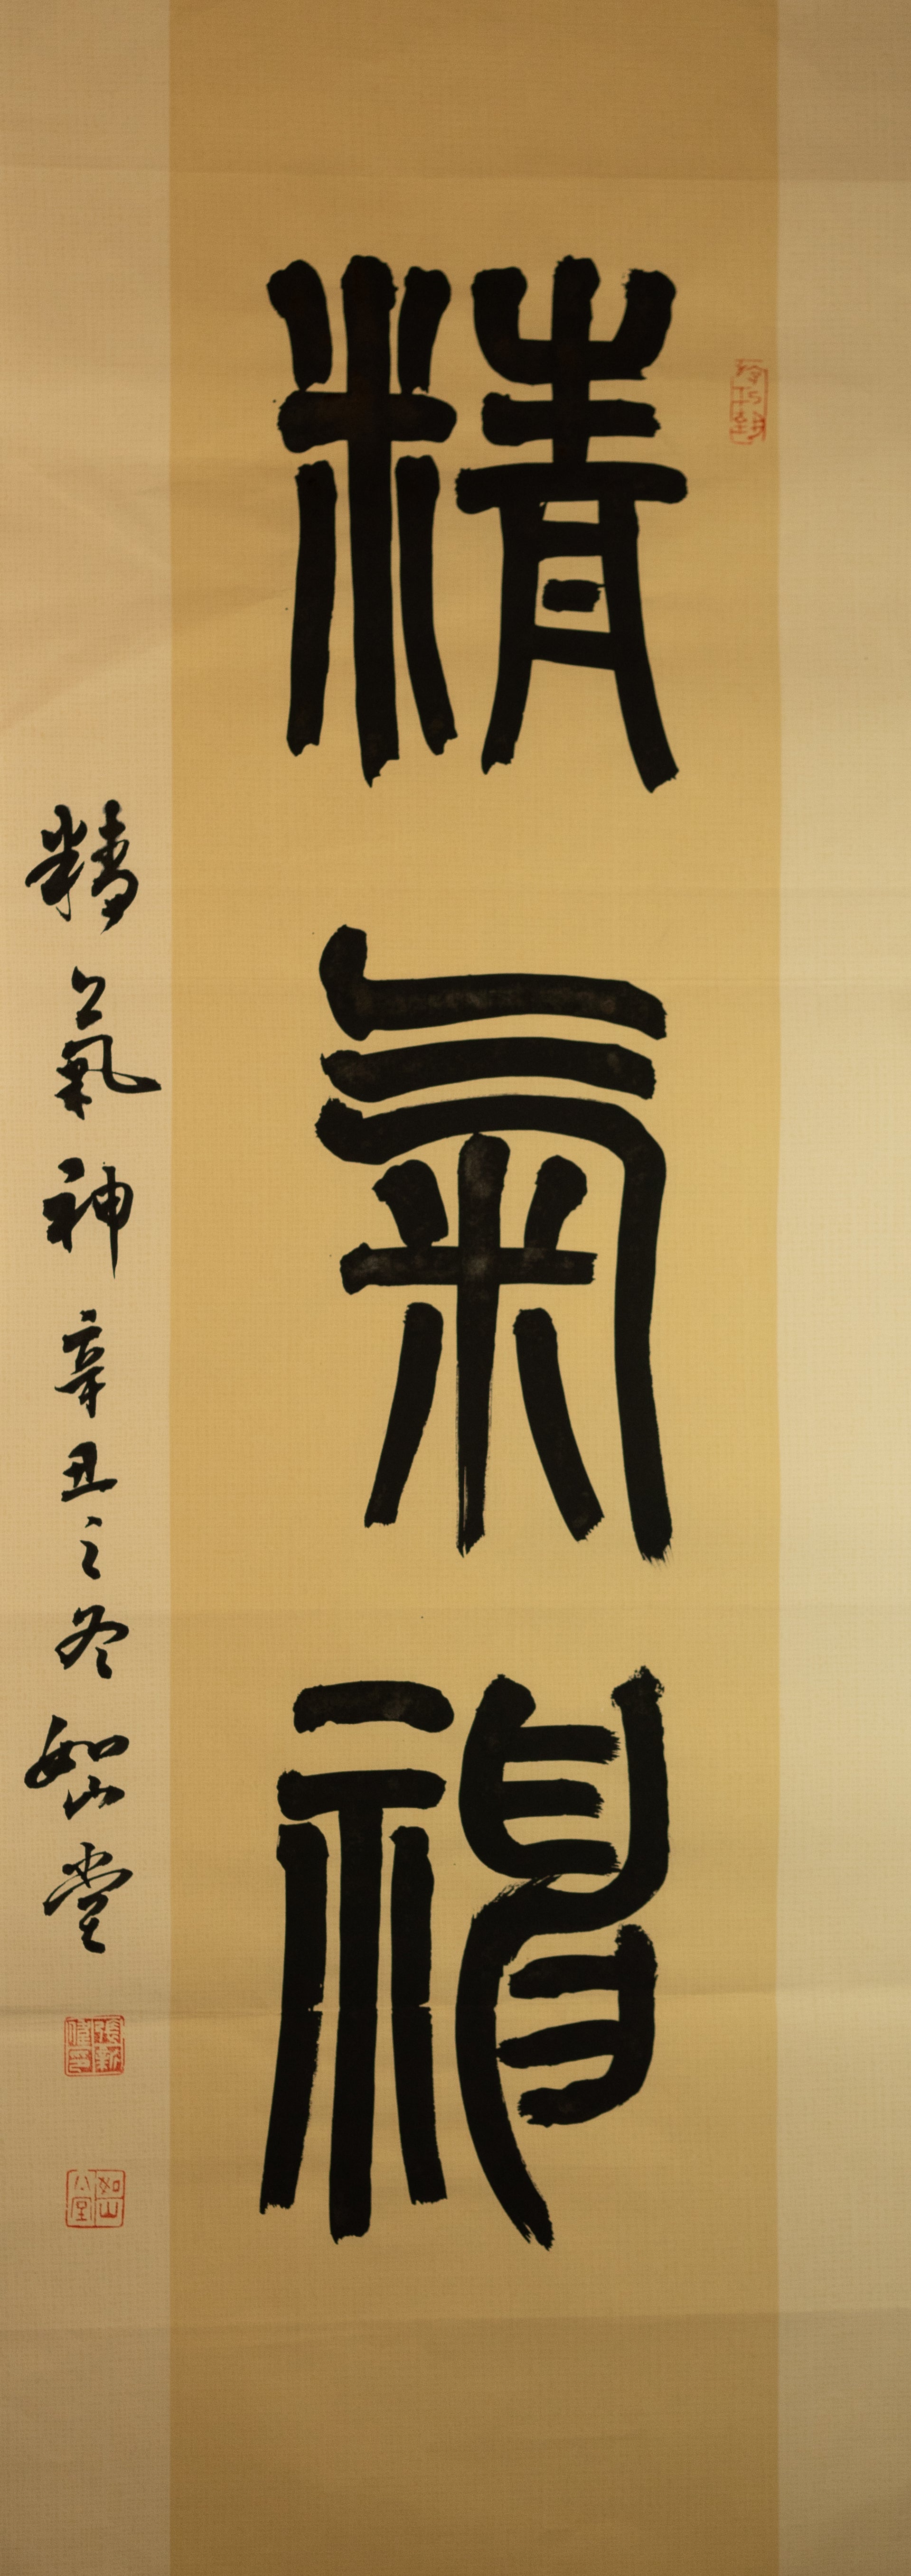 精氣神
精氣神辛丑之冬如山堂
張新
如山堂